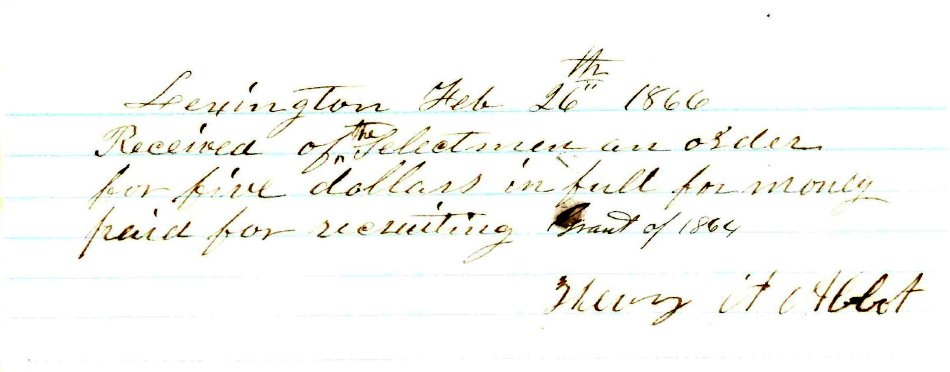 Lexington Feb 26th 1866
Received of the Selectmen an order
for five dollars in full for money
paid for recruiting Grant of 1864
Henry A Abbot